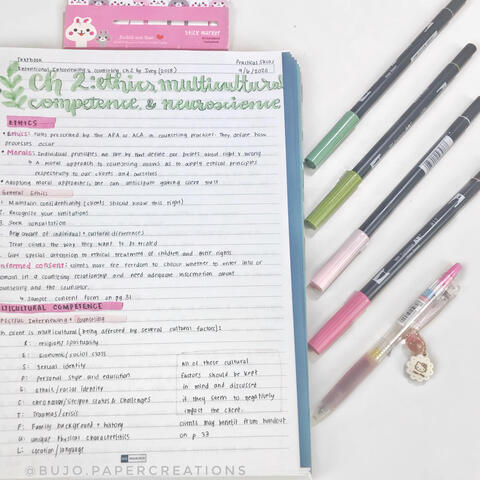 STICK MARKER
Textbook
Practical Skills
Intentional Interviewing & counseling ch 2 by Ivey (2018)
9/6/2020
Ch 2: ethics, multicultural
competence, & neuroscience
ETHICS
• Ethics: rules prescribed by the APA or ACA in counseling practices. They define how
processes occur
• Morals: Individual principles we live by that define our beliefs about right & wrong
↳ A moral approach to counseling allows us to apply ethical principles
respectfully to our clients and ourselves
• Adopting moral approaches, we can anticipate gaining client trust
General Ethics
Maintain confidentiality (clients should know this right)
Recognize your limitations
Seek consultation
Be aware of individual & cultural differences
Treat clients the way they want to be treated
Give special attention to ethical treatment of children and their rights
Informed consent: clients have the freedom to choose whether to enter into or
remain in a counseling relationship and need adequate information about
counseling and the counselor.
↳ sample consent form on pg. 31
MULTICULTURAL COMPETENCE
Respectful Interviewing & Counseling
Each client is multicultural (being affected by several cultural factors):
R: religion/spirituality
E: economic/social class
S: sexual identity
P: personal style and education
E: ethnic/racial identity
C: chronology/lifespan status & challenges
T: Traumas/crisis
F: Family background & history
U: unique Physical characteristics
L: Location/language
All of these cultural
factors should be kept
in mind and discussed
if they seem to negatively
impact the client.
clients may benefit from handout
on p. 33
@BUJO.PAPERCREATIONS